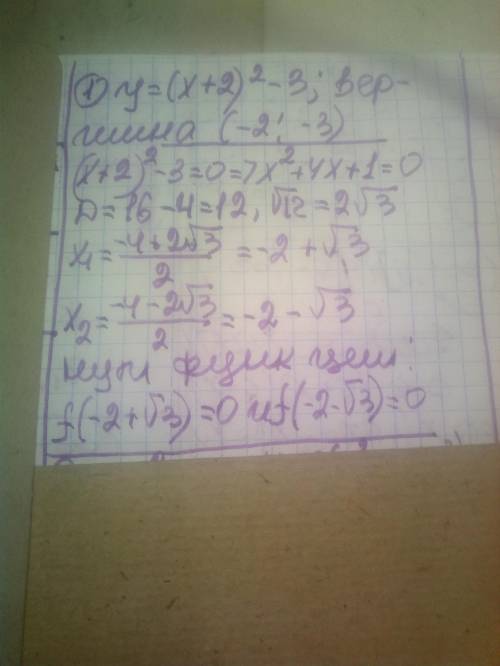 ① y=(x+2)²-3; вер-
шина (-2; -3)
(x+2)²-3=0=7x²+4x+1=0
D=16-4=12, √12=2√3
x₁=(-4+2√3)/2=-2+√3
x₂=(-4-2√3)/2=-2-√3
нули функции:
f(-2+√3)=0 и f(-2-√3)=0